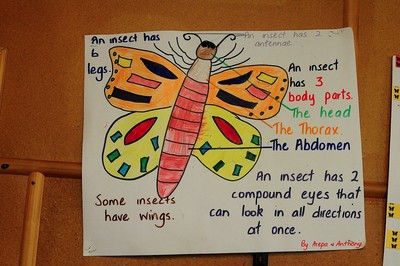 An insect has
6
legs.
An insect has 2
antennae.
An insect
has 3
body parts.
The head
The Thorax.
The Abdomen
Some insects
have wings.
An insect has 2
compound eyes that
can look in all directions
at once.
By Arepa & Anthony